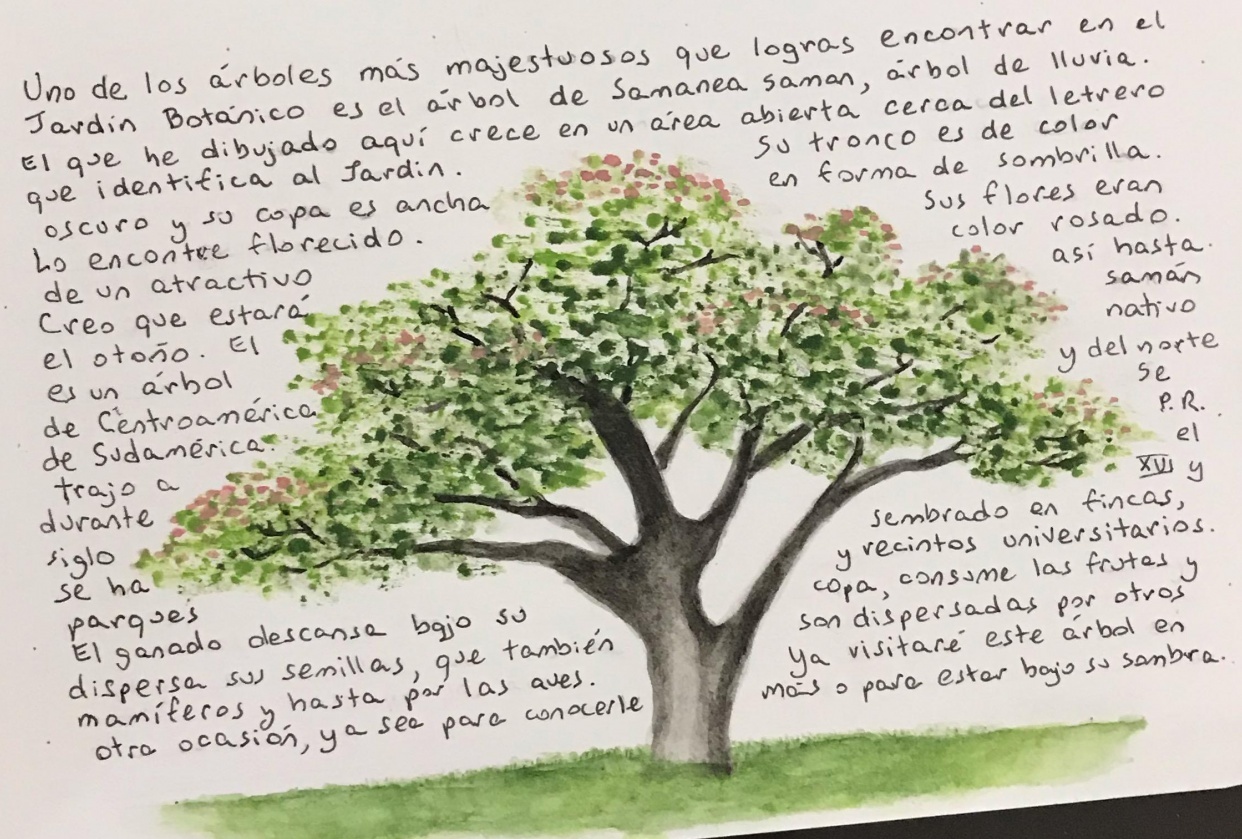 Uno de los árboles más majestuosos que logras encontrar en el
Jardín Botánico es el árbol de Samanea saman, árbol de lluvia.
El que he dibujado aquí crece en un área abierta cerca del letrero
que identifica al Jardín. Su tronco es de color
oscuro y su copa es ancha en forma de sombrilla.
Lo encontre florecido. Sus flores eran
de un atractivo color rosado.
Creo que estará así hasta
el otoño. El samán
es un árbol nativo
de Centroamérica y del norte
de Sudamérica. Se
trajo a P.R.
durante el
siglo XVI y
se ha sembrado en fincas,
parques y recintos universitarios.
El ganado descansa bajo su copa, consume las frutas y
dispersa sus semillas, que también son dispersadas por otros
mamíferos y hasta por las aves. Ya visitaré este árbol en
otra ocasión, ya sea para conocerle más o para estar bajo su sombra.